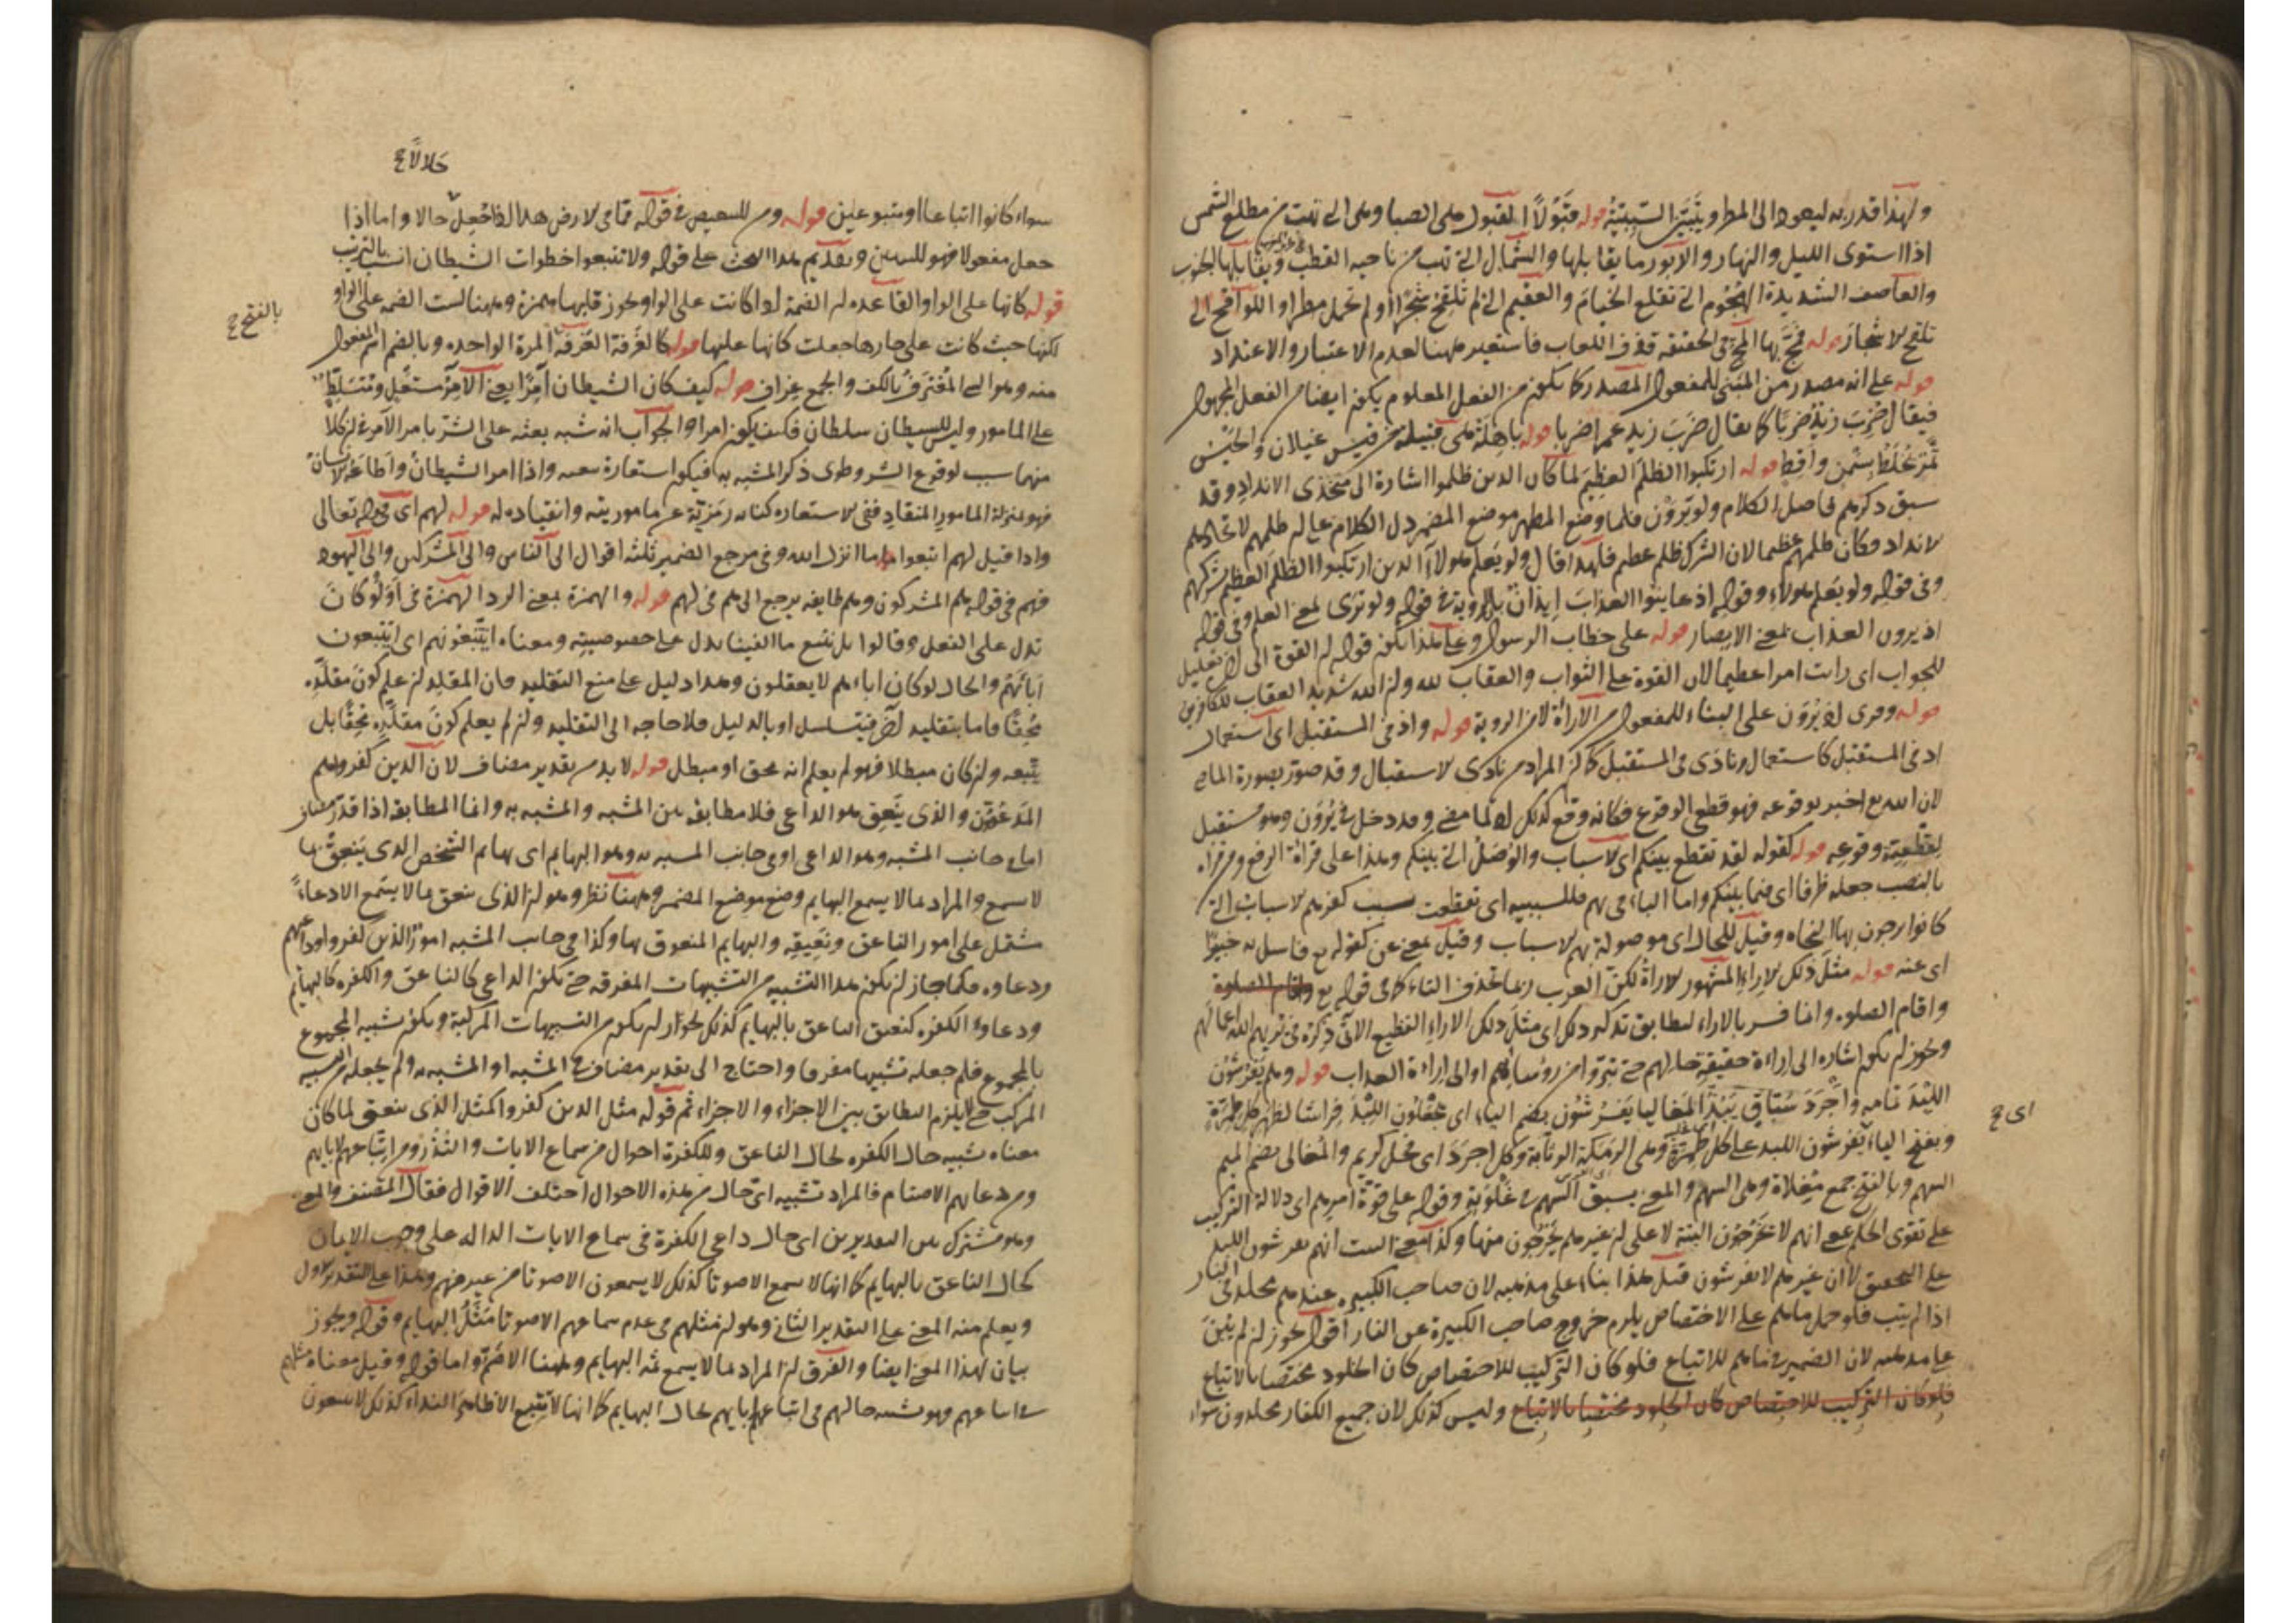 ولهذا قدر به ليعود الى المطر ويتبين السببية قوله قبولا القبول هى الصبا وهى التى تهب من مطلع الشمس
اذا استوى الليل والنهار والدبور ما يقابلها والشمال التى تهب من ناحية القطب ويقابلها الجنوب
والعاصف الشديدة الهجوم التى تقلع الخيام والعقيم التى لم تلقح شجرا ولم تحمل مطرا واللواقح التى
تلقح الاشجار قوله فمج بها المج فى الحقيقة قذف اللعاب فاستعير ههنا لعدم الاعتبار والاعتداد
قوله على انه مصدر من المبنى للمفعول المصدر كما يكون من الفعل المعلوم يكون ايضا من الفعل المجهول
فيقال ضرب زيد ضربا كما يقال ضرب زيد عمرا ضربا قوله باهلة هى قبيلة من قيس عيلان والحيس
تمر يخلط بسمن واقط قوله ارتكبوا الظلم العظيم لما كان الذين ظلموا اشارة الى متخذى الانداد وقد
سبق ذكرهم فى اصل الكلام ولو يرون فلما وضع المظهر موضع المضمر دل الكلام على ان ظلمهم لاتخاذهم
الانداد وكان ظلمهم عظيما لان الشرك ظلم عظيم فلهذا قال ولو يعلم هولاء الذين ارتكبوا الظلم العظيم بشركهم
وفى قوله ولو يعلم هولاء وقوله اذ عاينوا العذاب ايذان بان الروية فى قوله ولو ترى بمعنى العلم وفى قوله
اذ يرون العذاب بمعنى الابصار قوله على خطاب الرسول وعلى هذا يكون قوله ان القوة الى اخره تعليل
للجواب اى رايت امرا عظيما لان القوة على الثواب والعقاب لله وان الله شديد العقاب للكافرين
قوله وقرى اذ يرون على البناء للمفعول من الاراءة لا من الروية قوله واذ فى المستقبل اى استعمال
اذ فى المستقبل كاستعمال ونادى فى المستقبل كان المراد من نادى الاستقبال وقد صور بصورة الماضى
لان الله تع اخبر بوقوعه فهو قطعى الوقوع فكانه وقع كذلك اذ لما مضى وقد دخل فى يرون وهو مستقبل
لقطعية وقوعه قوله كقوله لقد تقطع بينكم اى الاسباب والوصل التى بينكم وهذا على قراءة الرفع ومن قراه
بالنصب جعله ظرفا اى فيما بينكم واما الباء فى بهم فللسببية اى تقطعت بسبب كفرهم الاسباب التى
كانوا يرجون بها النجاة وقيل للحال اى موصولة بهم الاسباب وقيل بمعنى عن كقوله تع فاسل به خبيرا
اى عنه قوله مثل ذلك الاراء المشهور الاراءة لكن العرب ربما تحذف التاء كما فى قوله تع واقام الصلوة
واقام الصلوه وانما فسر بالاراء ليطابق تذكير ذلك اى مثل ذلك الاراء الفظيع الاتى ذكره فى يريهم الله اعمالهم
ويجوز ان يكون اشارة الى اراءة حقيقة حالهم حتى تبروا من روسائهم او الى اراءة العذاب قوله وهم يفرشون
اللبد تمامه واجرد سباق يبذ المغاليا يفرشون بضم الياء اى يجعلون اللبد فراشا لظهر كل طمرة
اى ح
وبفتح الياء يفرشون اللبد على كل طمرة وهى الرمكة الوثابة وكل اجرد اى فحل كريم والمغالى بضم الميم
السهم وبالفتح جمع مغلاة وهى السهم والمعنى يسبق السهم فى غلوته وقوله على قوة امرهم اى دلالة التركيب
على تقوى الحكم بمعنى انهم لا يخرجون البتة لا على ان غيرهم يخرجون منها وكذا معنى البيت انهم يفرشون اللبد
على التحقيق لا ان غيرهم لا يفرشون قيل هذا بناء على مذهبه لان صاحب الكبيرة عندهم مخلد فى النار
اذا لم يتب فلو حمل ما هم على الاختصاص يلزم خروج صاحب الكبيرة عن النار اقول يجوز ان لم يبن
على مذهبه لان الضمير فى ما هم للاتباع فلو كان التركيب للاختصاص كان الخلود مختصا بالاتباع
فلو كان التركيب للاختصاص كان الخلود مختصا بالاتباع وليس كذلك لان جميع الكفار مخلدون سواء
حلالا ح
سواء كانوا اتباعا او متبوعين قوله ومن للتبعيض فى قوله مما فى الارض هذا اذا جعل حالا واما اذا
جعل مفعولا فهو للتبيين وتقديم هذا البحث على قوله ولا تتبعوا خطوات الشيطان انسب بالترتيب
قوله كانها على الواو القاعدة ان الضمة اذا كانت على الواو يجوز قلبها همزة وههنا ليست الضمة على الواو
بالفتح ح
لكنها حيث كانت على جارها جعلت كانها عليها قوله كالغرفة الغرفة المرة الواحدة وبالضم اسم المفعول
منه وهو الشى المغترف بالكف والجمع غراف قوله كيف كان الشيطان امرا يعنى الامر مستعل ومتسلط
على المامور وليس للشيطان سلطان فكيف يكون امرا والجواب انه شبه بعثه على الشر بامر الامر فى ان كلا
منهما سبب لوقوع الشر وطوى ذكر المشبه به فيكون استعارة تبعية واذا امر الشيطان واطاعه الانسان
فهو بمنزلة المامور المنقاد ففى الاستعارة كناية رمزية عن ماموريته وانقياده له قوله لهم اى قوله تعالى
واذا قيل لهم اتبعوا ما انزل الله وفى مرجع الضمير ثلثة اقوال الى الناس والى المشركين والى اليهود
فهم فى قوله هم المشركون وهم طايفة يرجع الى هم فى لهم قوله والهمزة بمعنى الرد الهمزة فى اولو كان
تدل على الفعل وقالوا بل نتبع ما الفينا يدل على خصوصيته ومعناه ايتبعونهم اى ايتبعون
اباءهم والحال لو كان اباءهم لا يعقلون وهذا دليل على منع التقليد فان المقلد ان علم كون مقلده
محقا فاما بتقليد اخر فيتسلسل او بالدليل فلا حاجة الى التقليد وان لم يعلم كون مقلده محقا بل
يتبعه وان كان مبطلا فهو لم يعلم انه محق او مبطل قوله لا بد من تقدير مضاف لان الذين كفروا هم
المدعوون والذى ينعق هو الداعى فلا مطابقة بين المشبه والمشبه به وانما المطابقة اذا قدر مضاف
اما فى جانب المشبه وهو الداعى او فى جانب المشبه به وهو البهايم اى بهايم الشخص الذى ينعق بما
لا يسمع والمراد بما لا يسمع البهايم وضع موضع المضمر وههنا نظر وهو ان الذى ينعق بما لا يسمع الا دعاء
مشتمل على امور الناعق ونعيقه والبهايم المنعوق بها وكذا فى جانب المشبه امور الذين كفروا وداعيهم
ودعاوه فكما جاز ان يكون هذا التشبيه من التشبيهات المفرقة حتى يكون الداعى كالناعق والكفرة كالبهايم
ودعاوه الكفرة كنعيق الناعق بالبهايم كذلك يجوز ان يكون من التشبيهات المركبة ويكون تشبيه المجموع
بالمجموع فلم جعله تشبيها مفرقا واحتاج الى تقدير مضاف فى المشبه او المشبه به ولم يجعله من تشبيه
المركب حتى لا يلزم التطابق بين الاجزاء والاجزاء ثم قوله مثل الذين كفروا كمثل الذى ينعق لما كان
معناه تشبيه حال الكفرة بحال الناعق وللكفرة احوال من سماع الايات والنذر ومن اتباعهم لابايهم
ومن دعايهم الاصنام فالمراد تشبيه اى حال من هذه الاحوال اختلف الاقوال فقال المصنف والمعنى
وهو مشترك بين التقديرين اى حال داعى الكفرة فى سماع الايات الدالة على وجوب الايمان
كحال الناعق بالبهايم كما انها لا تسمع الا صوتا كذلك لا يسمعون الا صوتا من غير فهم وهذا على التقدير الاول
ويعلم منه المعنى على التقدير الثانى وهو ان مثلهم فى عدم سماعهم الا صوتا مثل البهايم وقوله ويجوز
بيان لهذا المعنى ايضا والفرق ان المراد بما لا يسمع ثمة البهايم وههنا الاصم واما قوله وقيل معناه مثلهم
فى اتباعهم فهو تشبيه حالهم فى اتباعهم ابايهم بحال البهايم كما انها لا تتبع الا ظاهر النداء كذلك لا يتبعون